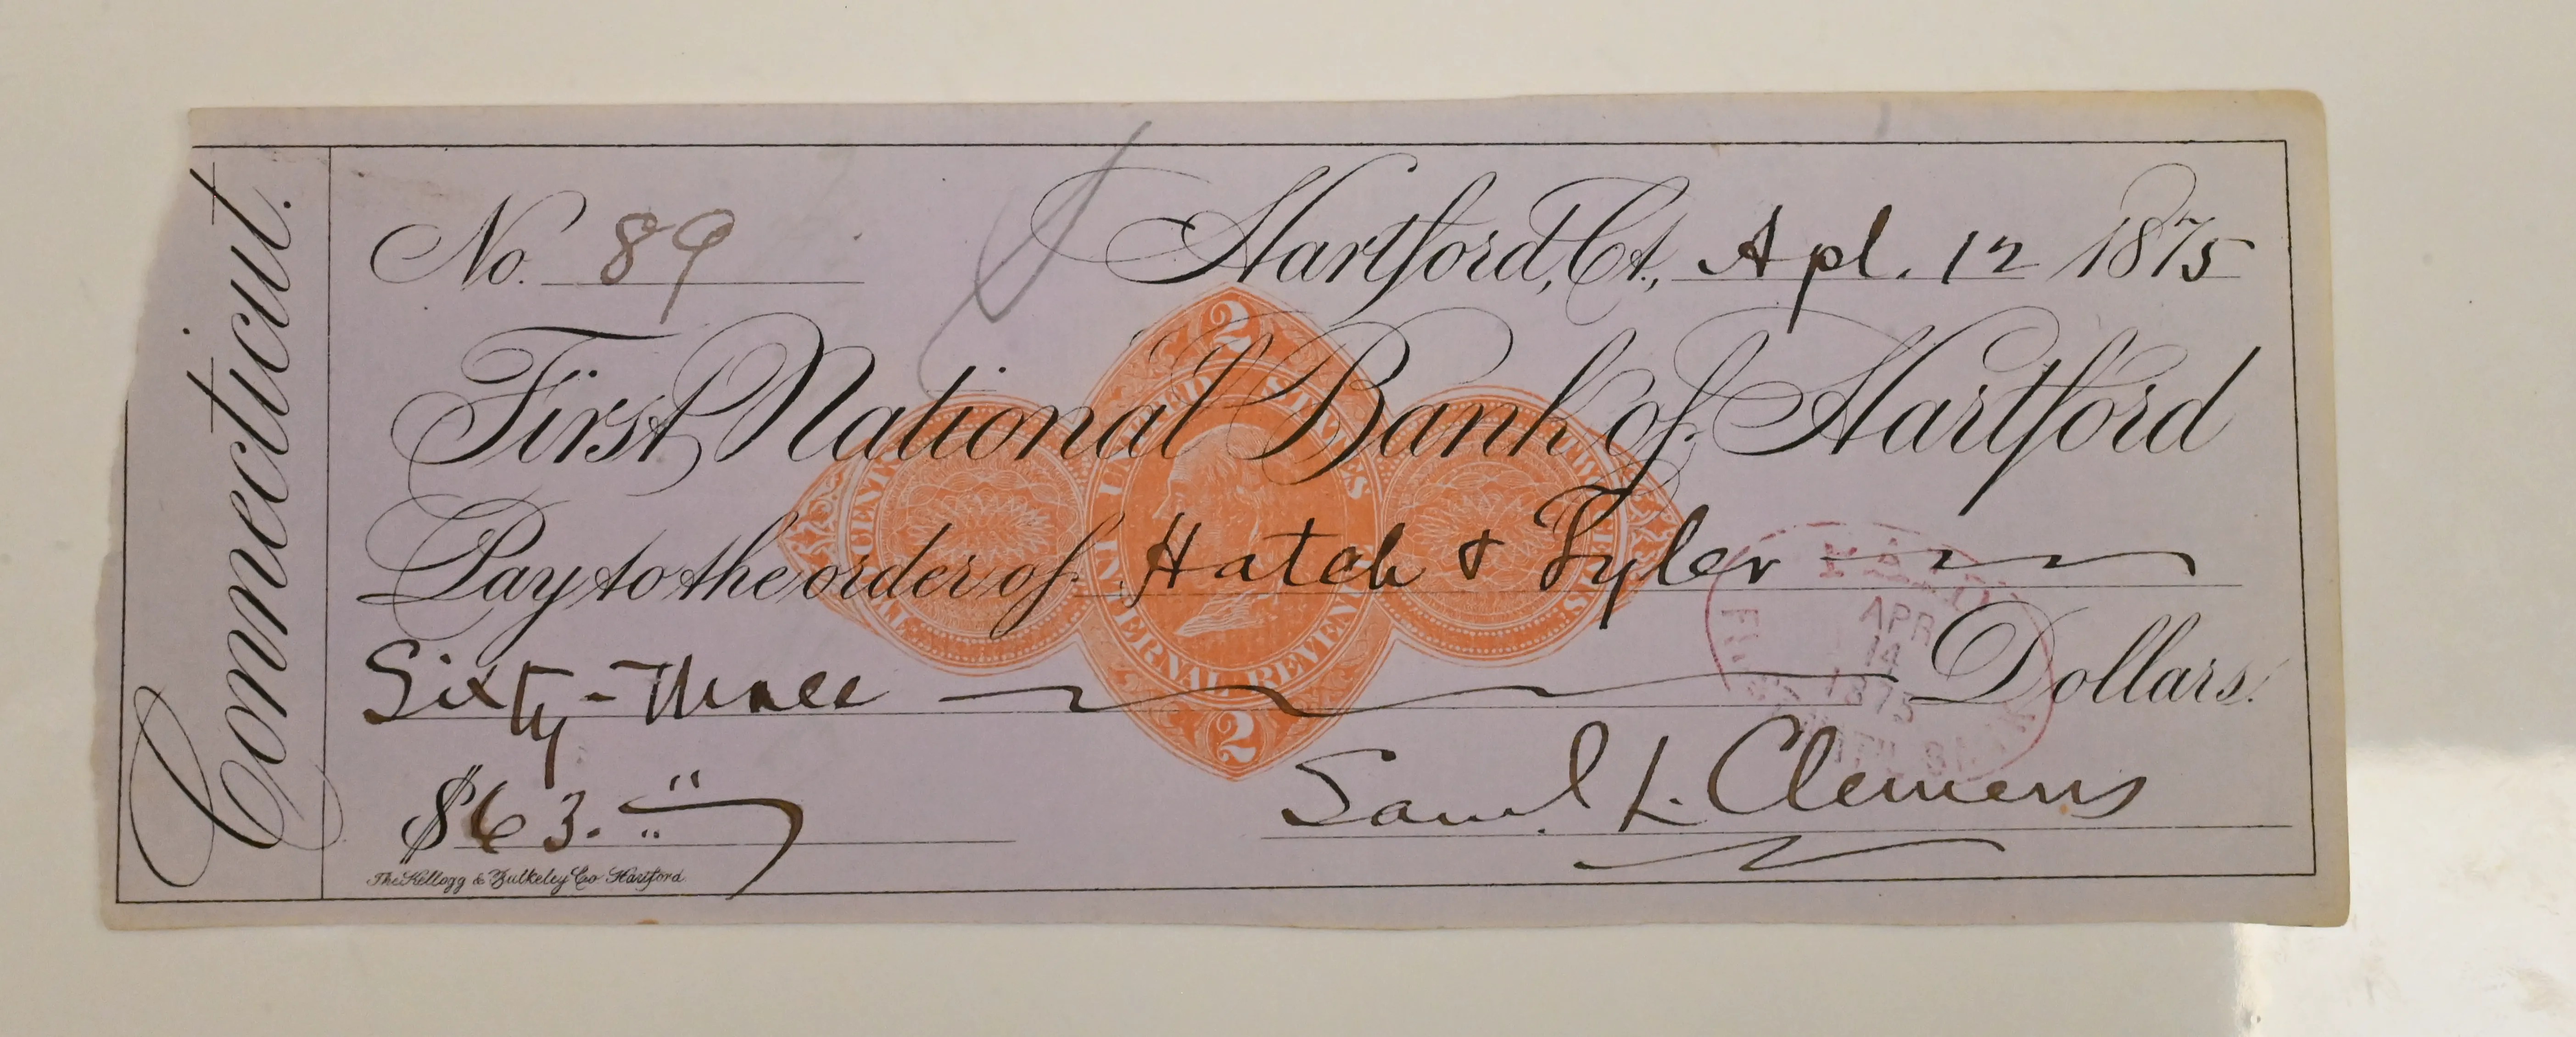 Connecticut.
No. 89 Hartford, Ct., Apl. 12 1875
First National Bank of Hartford
Pay to the order of Hatch & Tyler
Sixty-three Dollars.
$63.
Saml. L. Clemens
The Kellogg & Bulkeley Co. Hartford
2
UNITED STATES
INTERNAL REVENUE
2
TWO CENTS
PAID
APR
14
1875